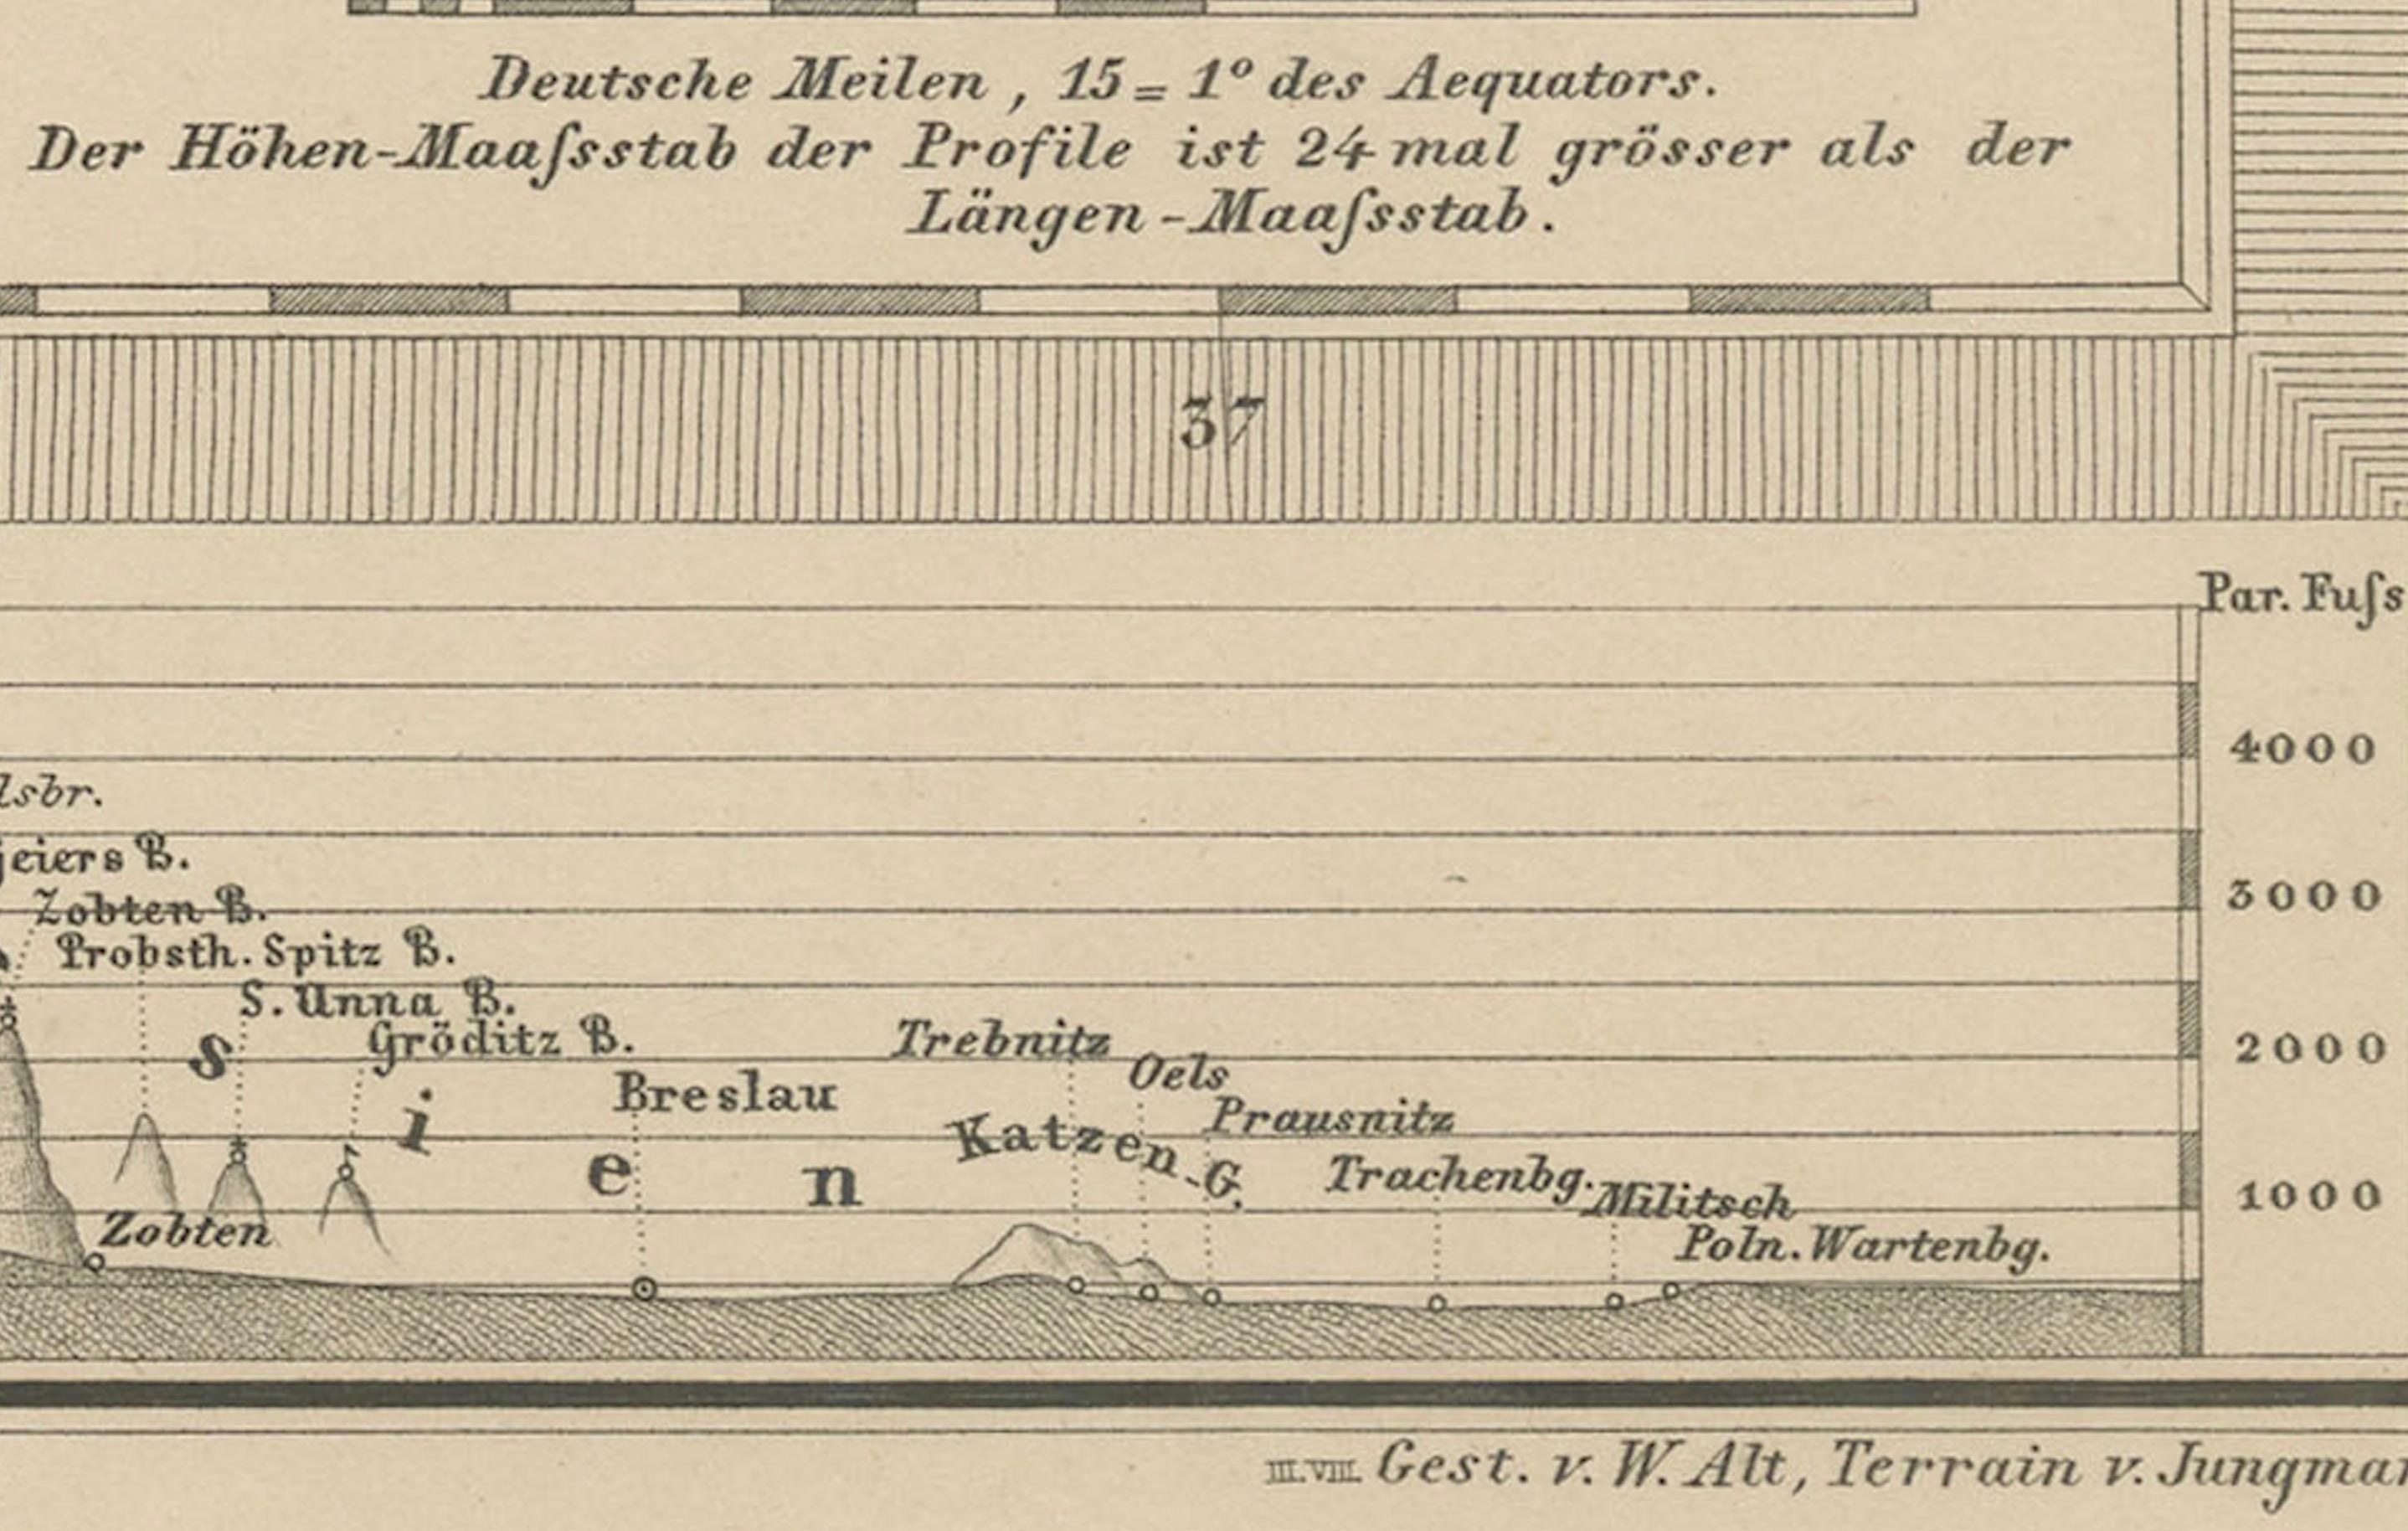 Deutsche Meilen , 15 = 1° des Aequators.
Der Höhen-Maaſsstab der Profile ist 24 mal grösser als der
Längen-Maaſsstab.
37
Par. Fuſs
4000
lsbr.
jeiers B.
3000
Zobten B.
Probsth. Spitz B.
S. Anna B.
Gröditz B.
Trebnitz
2000
s
Oels
Breslau
Prausnitz
i
Katzen-G.
e
n
Trachenbg.
Militsch
1000
Zobten
Poln. Wartenbg.
III.VIII. Gest. v. W. Alt, Terrain v. Jungma